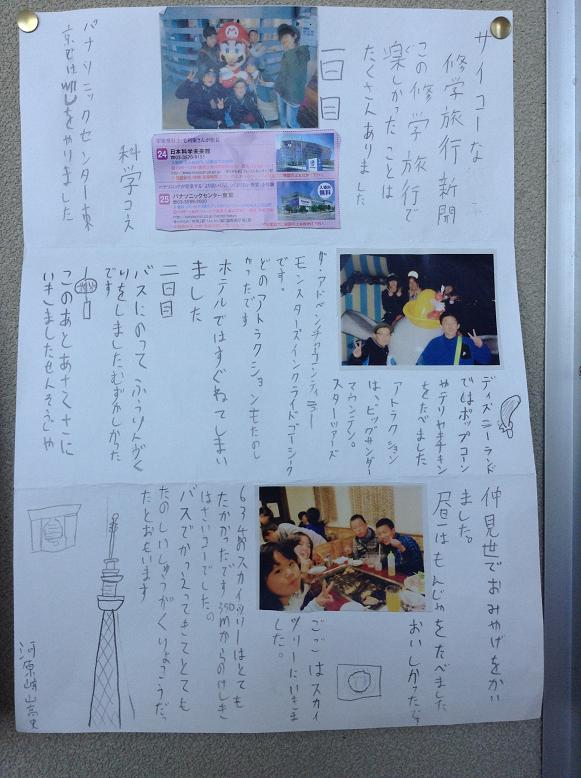 サイコーな
修学旅行新聞
この修学旅行で
楽しかったことは
たくさんありました
一日目
24 日本科学未来館
25 パナソニックセンター東京
入場料
無料
科学コース
パナソニックセンター東
京では
をやりました
ディズニーランド
ではポップコーン
やテリヤキチキン
をたべました
アトラクション
は、ビッグサンダー
マウンテン。
スターツアーズ
ザ・アドベンチャーコンティニュー
モンスターズインクライドゴーシーク
です。
どのアトラクションもたのし
かったです
ホテルではすぐねてしまい
ました
二日目
バスにのってふうりんがく
りをしましたむずかしかった
です
このあとあさくさに
いきましたせんそうじや
仲見世でおみやげをかい
ました。
昼はもんじゃをたべました
おいしかったです
ごごはスカイ
ツリーにいきま
した。
634のスカイツリーはとても
たかかったです350mからのけしき
はさいこーでした。
バスでかえってきてとても
たのしいしゅうがくりょこうだっ
たとおもいます